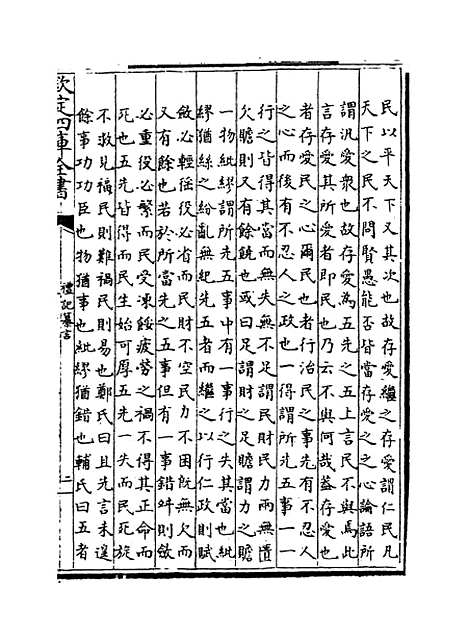 民以平天下又其次也故存愛繼之存愛謂仁民凡
天下之民不問賢愚能否皆當存愛之之心論語所
謂汎愛衆也故存愛為五先之五上言民不與焉此
言存愛其所愛者即民也乃云不與何哉葢存愛也
者存愛民之心爾民也者行治民之事先有不忍人
之心而後有不忍人之政也一得謂所先五事一一
行之皆得其當而無失無不足謂民財民力兩無匱
欠贍則又有餘饒也或曰足謂財之足贍謂力之贍
一物紕繆謂所先五事中有一事行之失其當也紕
繆猶絲之紛亂無紀先五者而繼之以行仁政則賦
斂必輕徭役必省而民財不空民力不困既無欠而
又有餘也若於所當先之五事但有一事錯舛則斂
必重役必繁而民受凍餒疲勞之禍不得其正命而
死也五先皆得而民生始可厚五先一失而民死旋
不救見福民則難禍民則易也鄭氏曰且先言未遑
餘事功功臣也物猶事也紕繆猶錯也輔氏曰五者
欽定四庫全書
禮記纂言
二